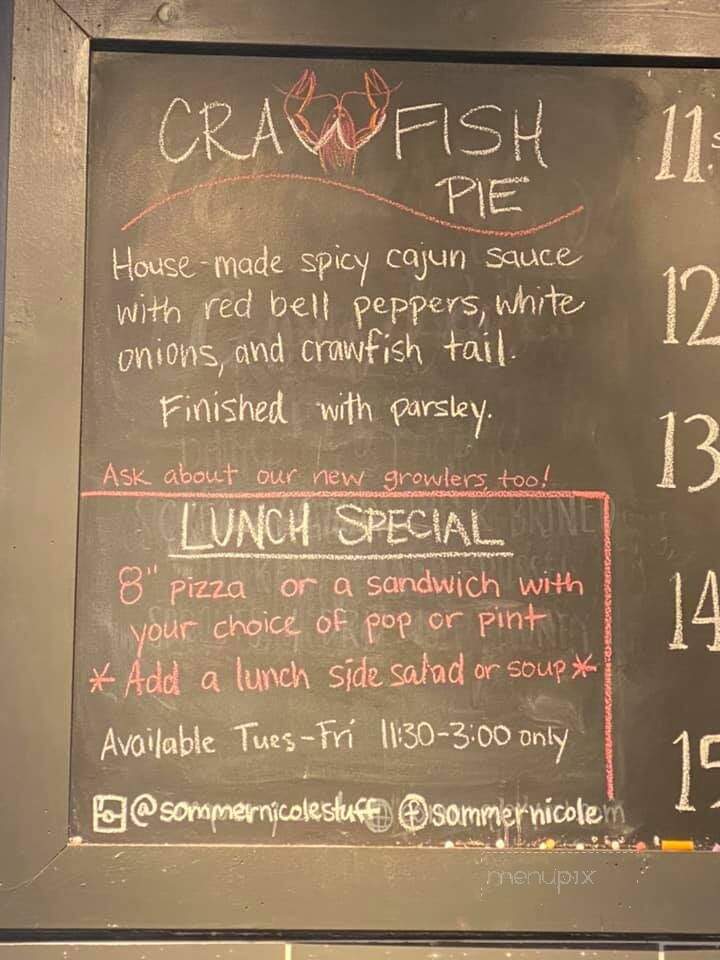 CRAWFISH
PIE
House-made spicy cajun sauce
with red bell peppers, white
onions, and crawfish tail.
Finished with parsley.
Ask about our new growlers, too!
LUNCH SPECIAL
8" pizza or a sandwich with
your choice of pop or pint
* Add a lunch side salad or soup *
Available Tues-Fri 11:30-3:00 only
@sommernicolestuff sommernicole
11
12
13
14
15
menupix